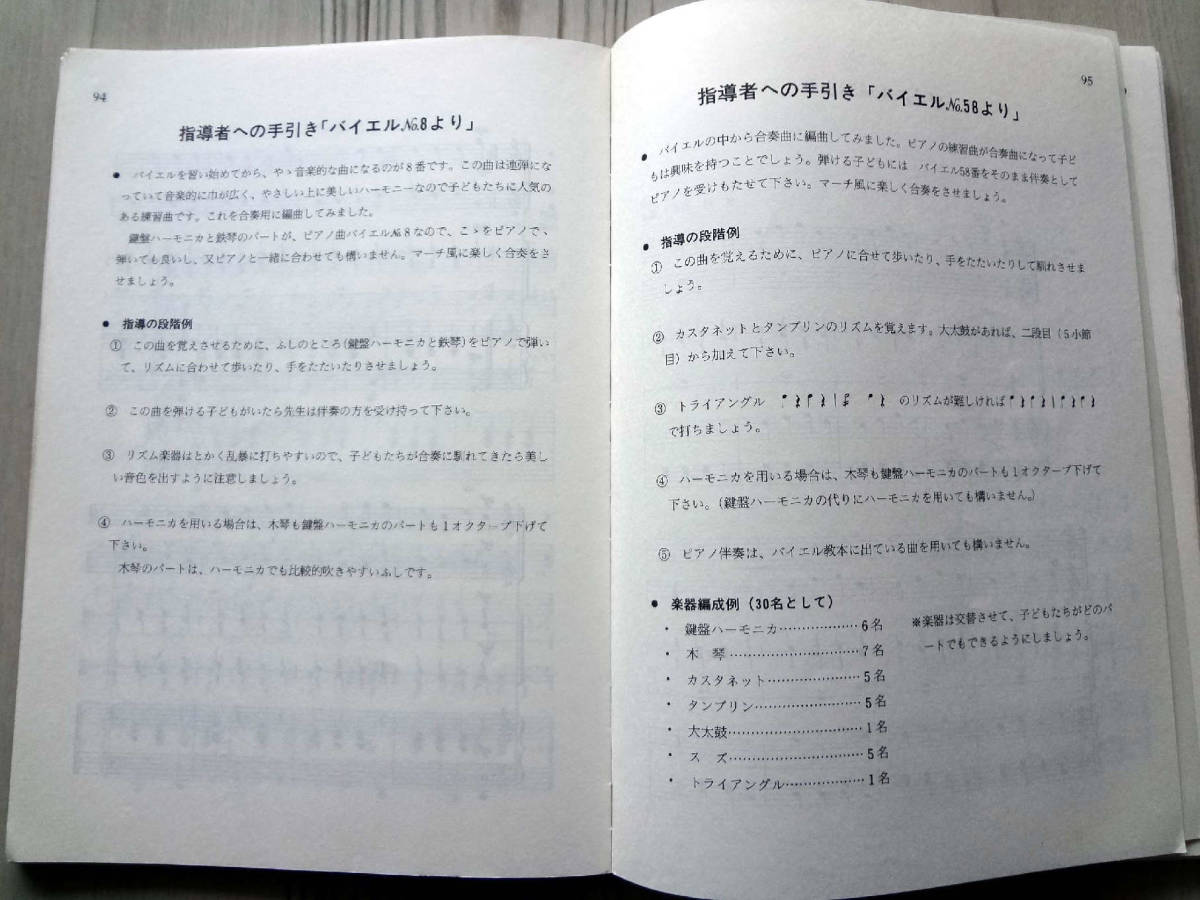 94
指導者への手引き「バイエル№8より」
● バイエルを習い始めてから、やゝ音楽的な曲になるのが8番です。この曲は連弾にな
っていて音楽的に巾が広く、やさしい上に美しいハーモニーなので子どもたちに人気の
ある練習曲です。これを合奏用に編曲してみました。
鍵盤ハーモニカと鉄琴のパートが、ピアノ曲バイエル№8なので、こゝをピアノで、
弾いても良いし、又ピアノと一緒に合わせても構いません。マーチ風に楽しく合奏をさ
せましょう。
● 指導の段階例
① この曲を覚えさせるために、ふしのところ(鍵盤ハーモニカと鉄琴)をピアノで弾い
て、リズムに合わせて歩いたり、手をたたいたりさせましょう。
② この曲を弾ける子どもがいたら先生は伴奏の方を受け持って下さい。
③ リズム楽器はとかく乱暴に打ちやすいので、子どもたちが合奏に馴れてきたら美し
い音色を出すように注意しましょう。
④ ハーモニカを用いる場合は、木琴も鍵盤ハーモニカのパートも1オクターブ下げて
下さい。
木琴のパートは、ハーモニカでも比較的吹きやすいふしです。
95
指導者への手引き「バイエル№58より」
● バイエルの中から合奏曲に編曲してみました。ピアノの練習曲が合奏曲になって子ど
もは興味を持つことでしょう。弾ける子どもには バイエル58番をそのまま伴奏として
ピアノを受けもたせて下さい。マーチ風に楽しく合奏をさせましょう。
● 指導の段階例
① この曲を覚えるために、ピアノに合せて歩いたり、手をたたいたりして馴れさせま
しょう。
② カスタネットとタンブリンのリズムを覚えます。大太鼓があれば、二段目(5小節
目)から加えて下さい。
③ トライアングル のリズムが難しければ
で打ちましょう。
④ ハーモニカを用いる場合は、木琴も鍵盤ハーモニカのパートも1オクターブ下げて
下さい。(鍵盤ハーモニカの代りにハーモニカを用いても構いません。)
⑤ ピアノ伴奏は、バイエル教本に出ている曲を用いても構いません。
● 楽器編成例(30名として)
・ 鍵盤ハーモニカ………………6名
・ 木 琴…………………………7名
・ カスタネット…………………5名
・ タンブリン……………………5名
・ 大太鼓…………………………1名
・ ス ズ…………………………5名
・ トライアングル………………1名
※楽器は交替させて、子どもたちがどのパ
ートでもできるようにしましょう。